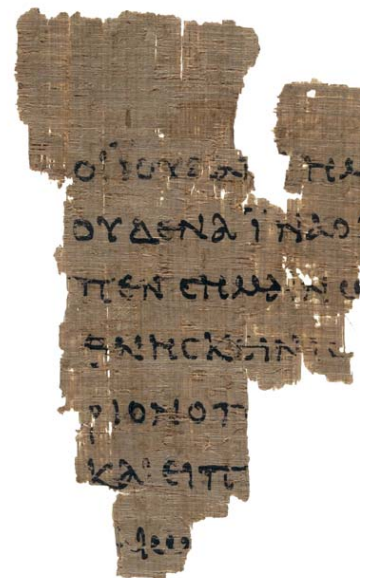 ΟΙ ΙΟΥΔΑΙ ΗΜ
ΟΥΔΕΝΑ ΙΝΑ Ο
ΠΕΝ CΗΜΑΙΝω
ΘΝΗCΚΕΙΝ
ΡΙΟΝ Ο Π
ΚΑΙ ΕΙΠ